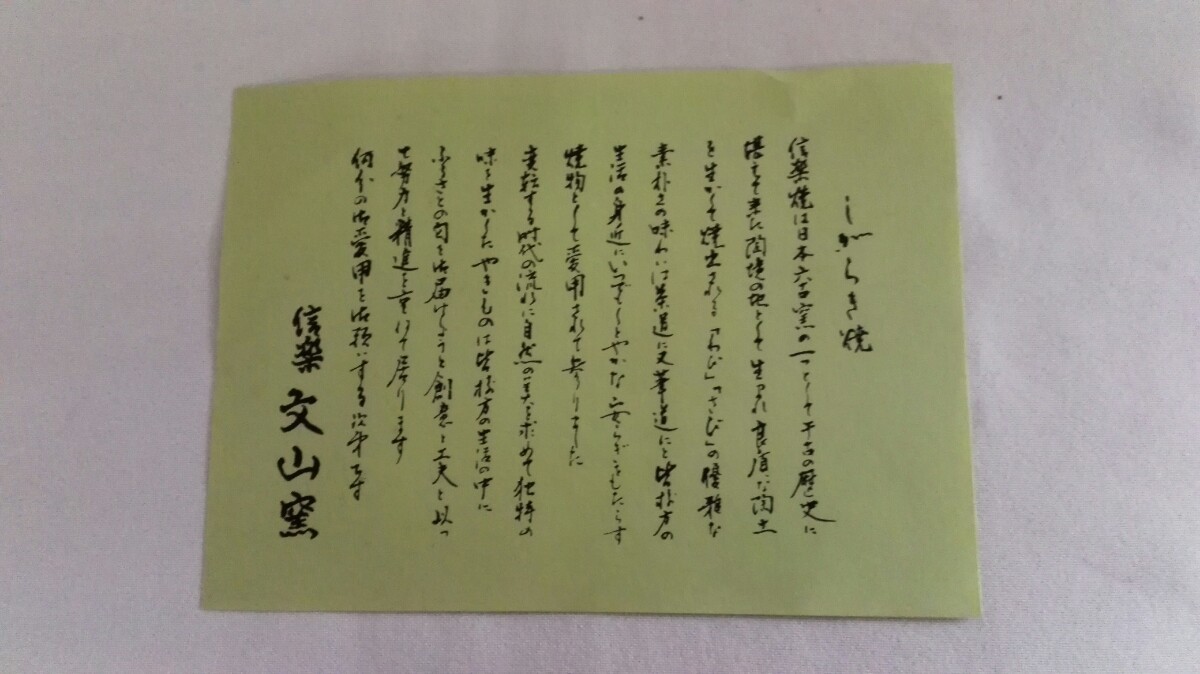 しがらき焼
信楽焼は日本六古窯の一つとして千古の歴史に
堪えて来た陶境の地として生まれ良質な陶土
を生かして焼出される「わび」「さび」の優雅な
素朴さの味わいは茶道に又華道にと皆様方の
生活の身近にいつでもしとやかな安らぎをもたらす
焼物として愛用されて参りました
変転する時代の流れに自然の美を求めて独特の
味を生かしたやきものは皆様方の生活の中に
ふるさとの匂を御届けしようと創意と工夫を以っ
て努力と精進を重ねて居ります
何卒の御愛用を御願いする次第です
信楽 文山窯